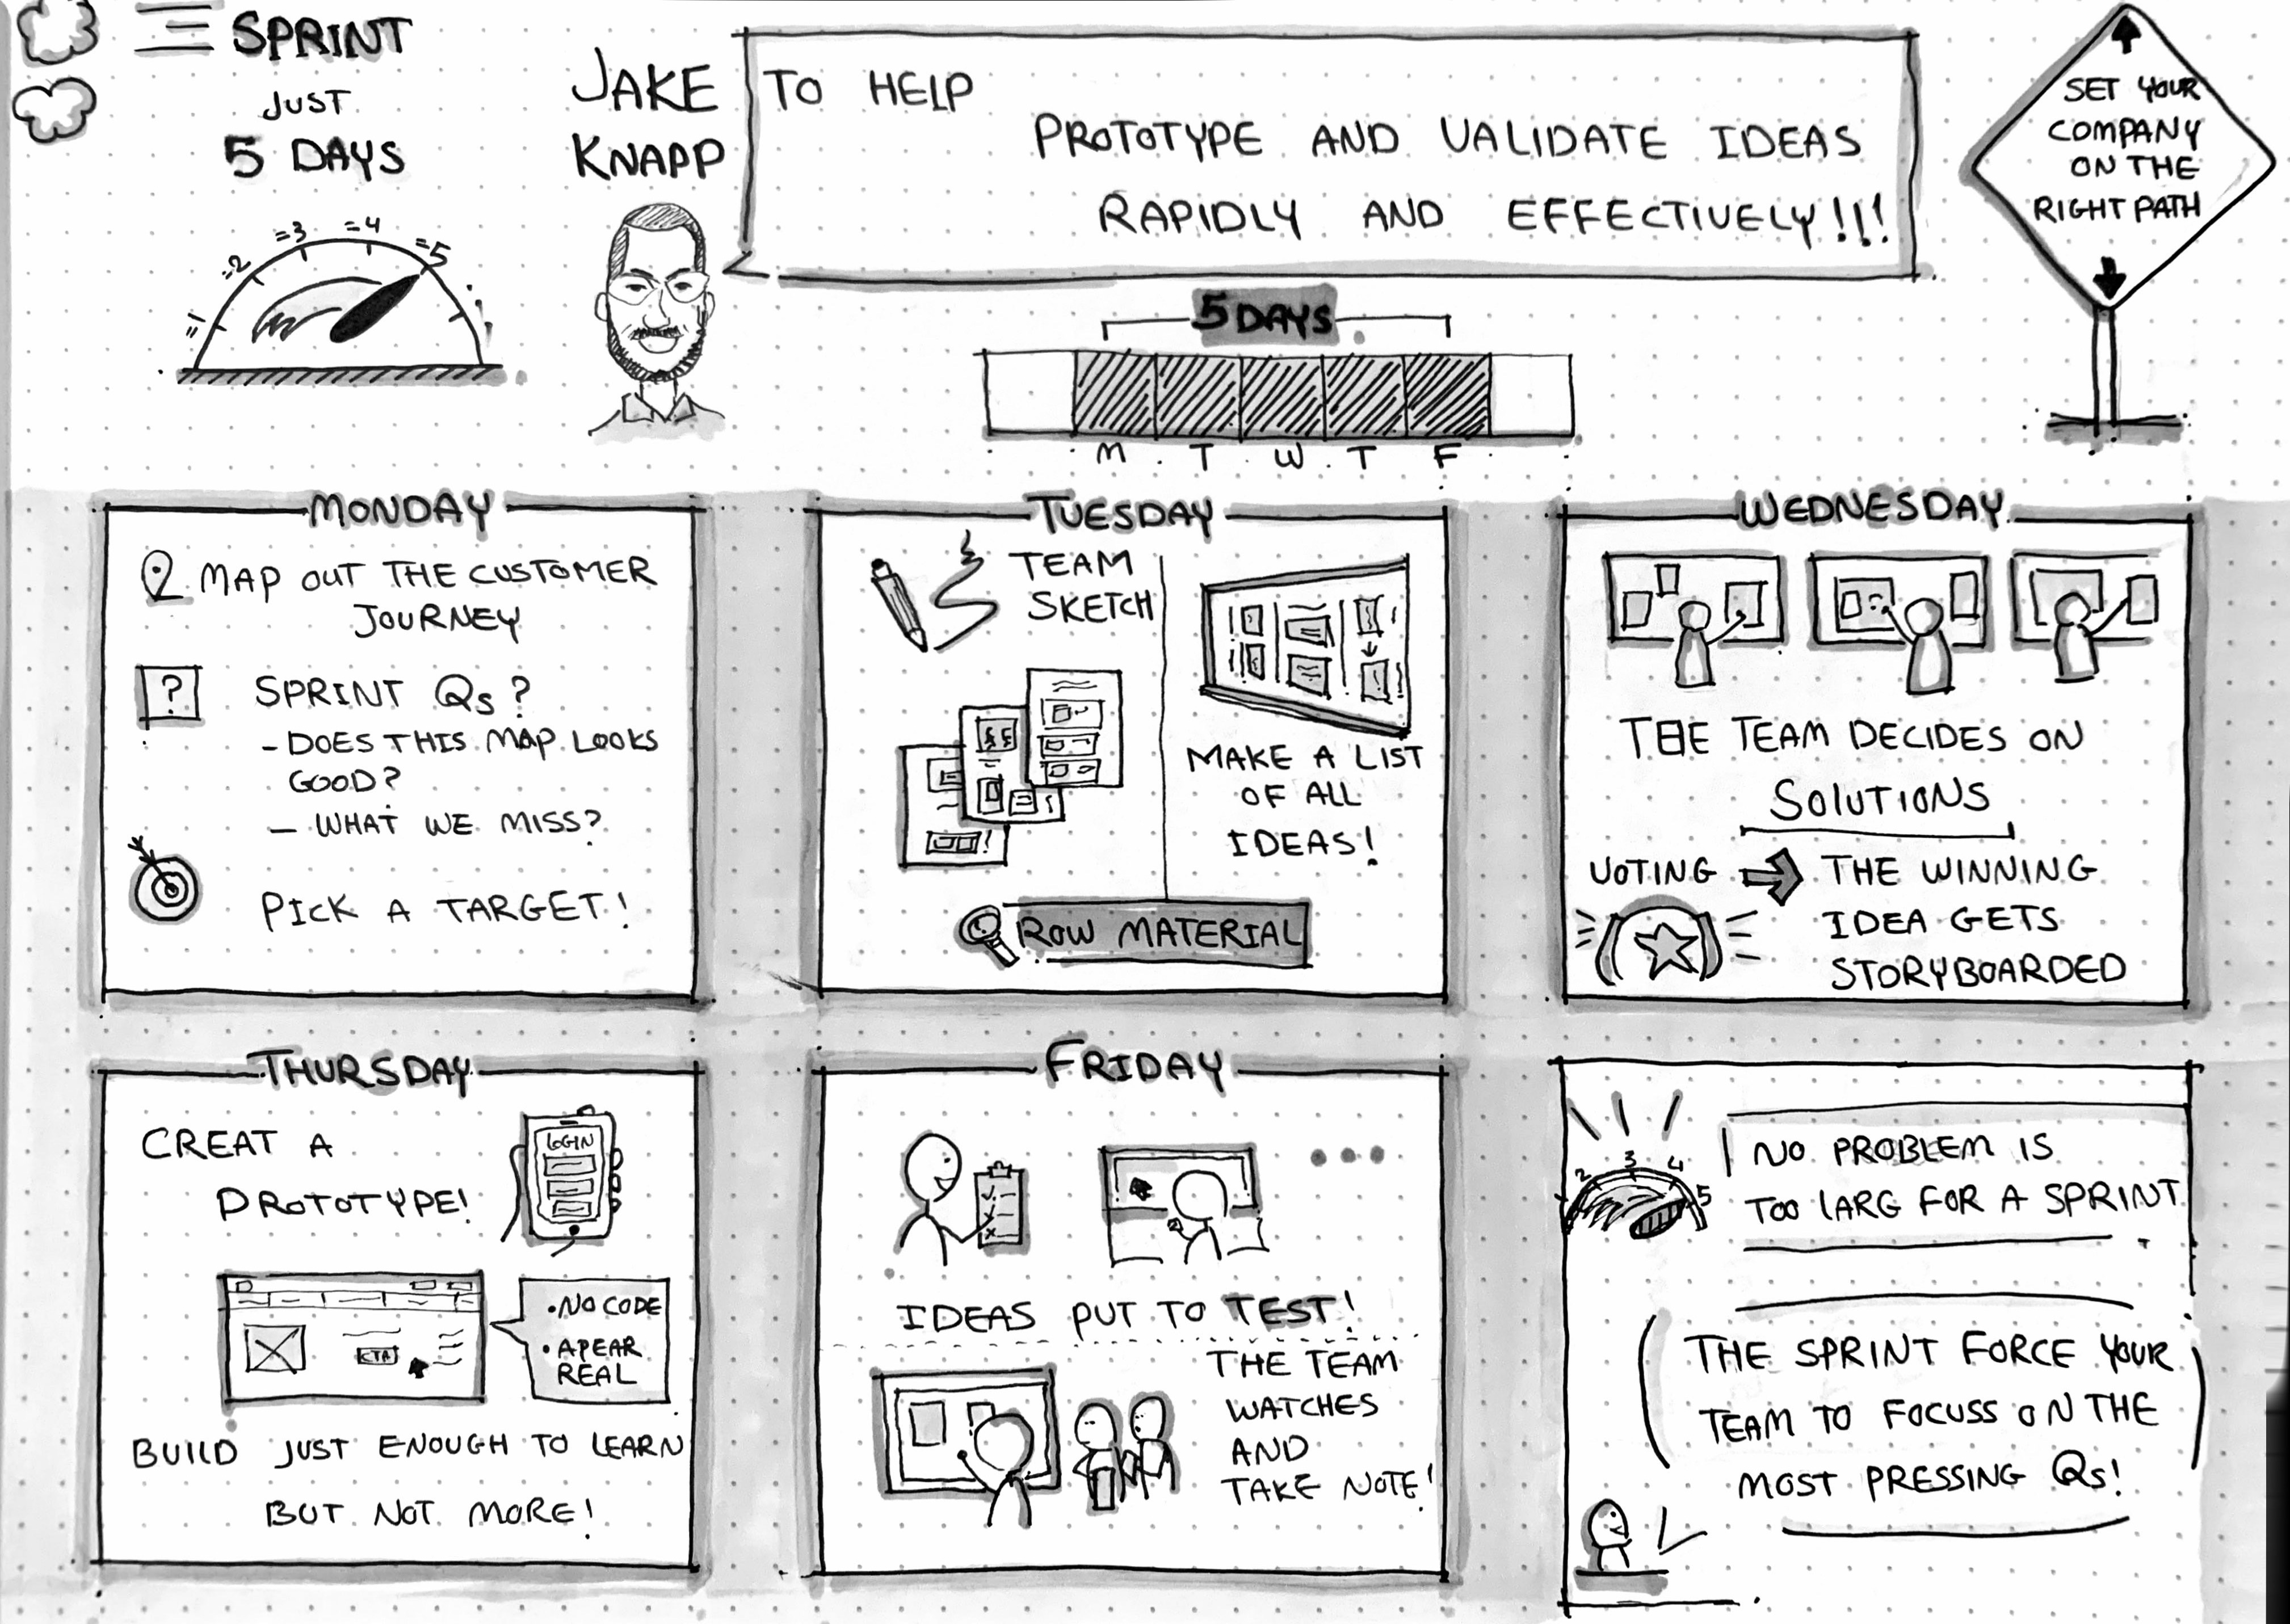 SPRINT
JUST
5 DAYS
=1
=2
=3
=4
=5
JAKE
KNAPP
TO HELP
PROTOTYPE AND VALIDATE IDEAS
RAPIDLY AND EFFECTIVELY!!!
SET YOUR
COMPANY
ON THE
RIGHT PATH
5 DAYS
M T W T F
MONDAY
MAP OUT THE CUSTOMER
JOURNEY
?
SPRINT Qs?
- DOES THIS MAP LOOKS
GOOD?
- WHAT WE MISS?
PICK A TARGET!
TUESDAY
TEAM
SKETCH
MAKE A LIST
OF ALL
IDEAS!
ROW MATERIAL
WEDNESDAY
THE TEAM DECIDES ON
SOLUTIONS
VOTING
THE WINNING
IDEA GETS
STORYBOARDED
THURSDAY
CREAT A
PROTOTYPE!
LOGIN
CTA
• NO CODE
• APEAR
REAL
BUILD JUST ENOUGH TO LEARN
BUT NOT MORE!
FRIDAY
IDEAS PUT TO TEST!
THE TEAM
WATCHES
AND
TAKE NOTE!
2 3 4 5
NO PROBLEM IS
TOO LARG FOR A SPRINT
THE SPRINT FORCE YOUR
TEAM TO FOCUSS ON THE
MOST PRESSING Qs!